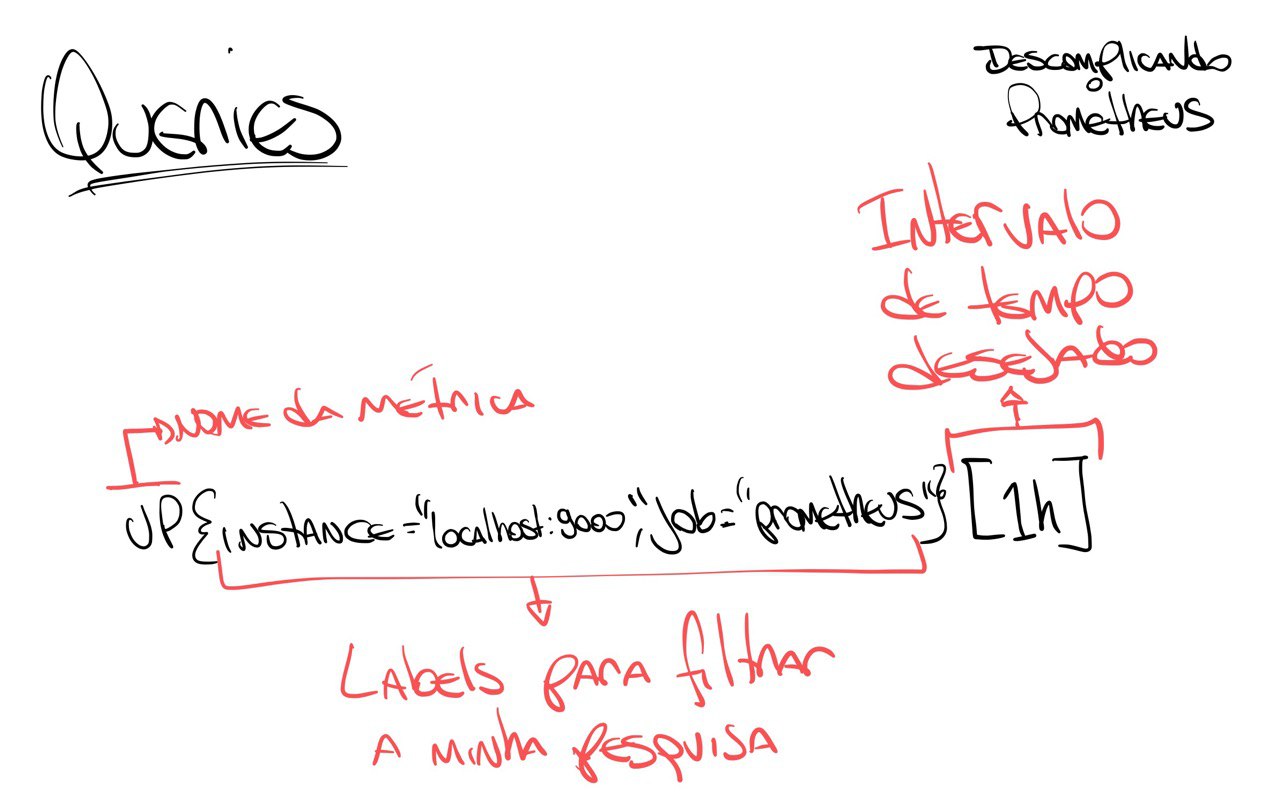 Queries
Descomplicando
o
Prometheus
Intervalo
de tempo
desejado
Nome da métrica
up{instance="localhost:9000", job="prometheus"}[1h]
Labels para filtrar
a minha pesquisa